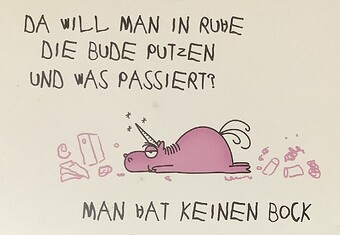 DA WILL MAN IN RUHE
DIE BUDE PUTZEN
UND WAS PASSIERT?
MAN HAT KEINEN BOCK